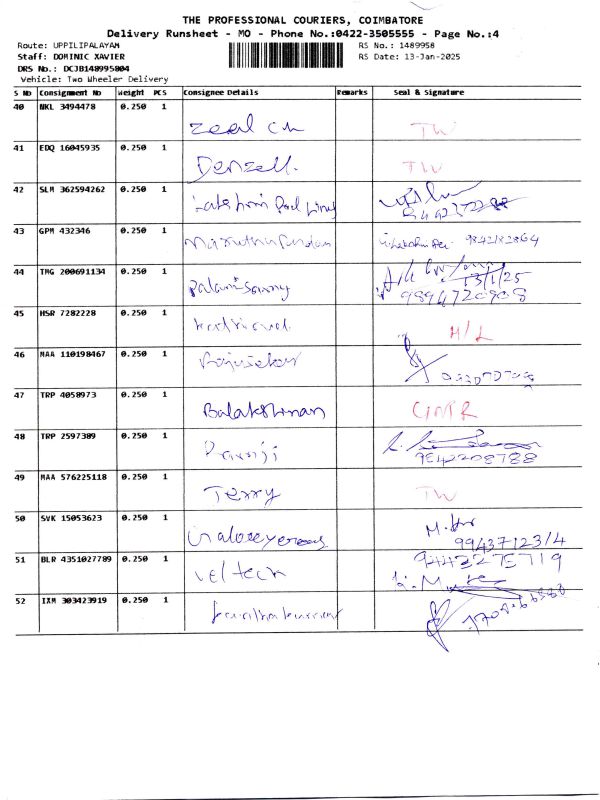 THE PROFESSIONAL COURIERS, COIMBATORE
Delivery Runsheet - MO - Phone No.:0422-3505555 - Page No.:4
Route: UPPILIPALAYAM RS No.: 1489958
Staff: DOMINIC XAVIER RS Date: 13-Jan-2025
DRS No.: DCJB148995804
Vehicle: Two Wheeler Delivery
S No Consignment No Weight PCS Consignee Details Remarks Seal & Signature
40 NKL 3494478 0.250 1
Zeal TW
41 EDQ 16045935 0.250 1
Denzell. TW
42 SLM 362594262 0.250 1
Lakshmi
43 GPM 432346 0.250 1
9842182864
44 TMG 200691134 0.250 1
Palanisamy 13/1/25
9894720908
45 HSR 7282228 0.250 1
H/L
46 MAA 110198467 0.250 1
Rajasekar
47 TRP 4058973 0.250 1
Balakshman
48 TRP 2597389 0.250 1
9842208788
49 MAA 576225118 0.250 1
Terry TW
50 SVK 15053623 0.250 1
51 BLR 4351027789 0.250 1
Veltech 9442275719
52 IXM 303423919 0.250 1